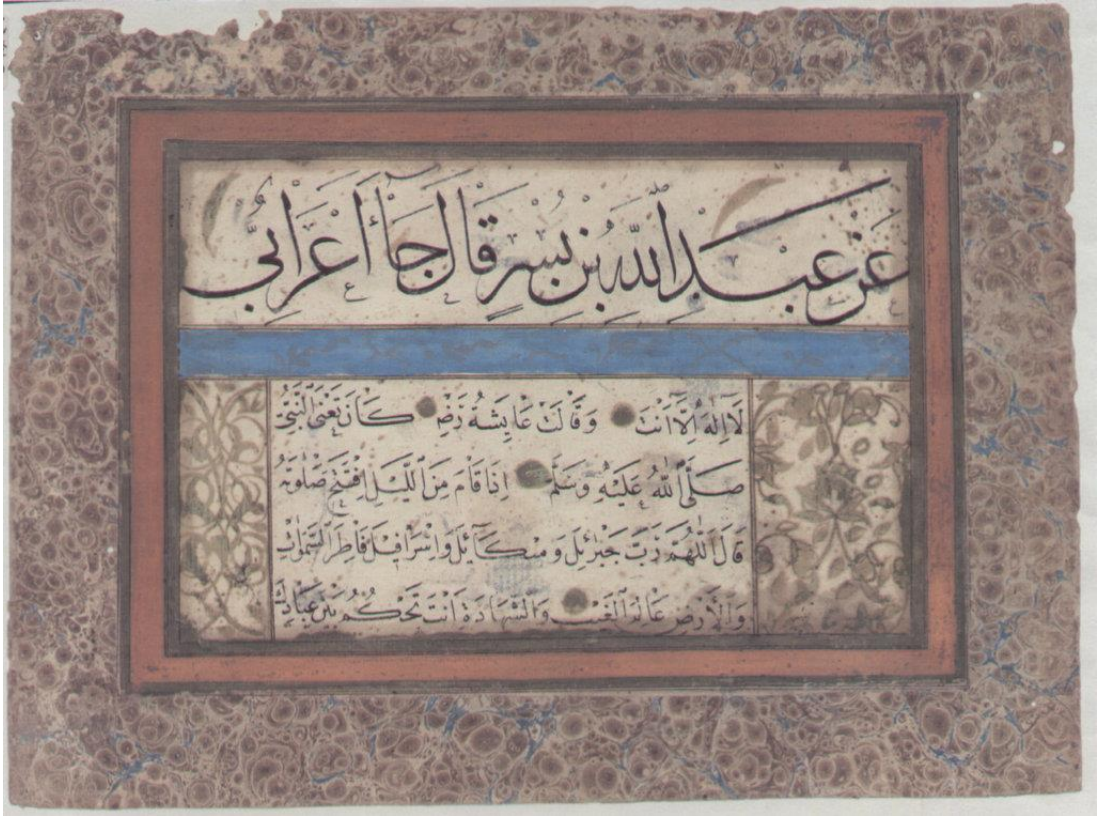 عَنْ عَبْدِ اللّٰهِ بْنِ بُسْرٍ قَالَ جَاۤءَ اَعْرَابِيٌّ
لَا اِلٰهَ اِلَّا اَنْتَ وَقَالَتْ عَايِشَةُ رَضِ كَانَ تَعْنِي النَّبِيَّ
صَلَّى اللّٰهُ عَلَيْهِ وَسَلَّمَ اِذَا قَامَ مِنَ اللَّيْلِ افْتَتَحَ صَلٰوتَهُ
قَالَ اللّٰهُمَّ رَبَّ جَبْرَئِلَ وَمِيْكَآئِلَ وَاِسْرَافِيْلَ فَاطِرَ السَّمٰوَاتِ
وَالْاَرْضِ عَالِمَ الْغَيْبِ وَالشَّهَادَةِ اَنْتَ تَحْكُمُ بَيْنَ عِبَادِكَ